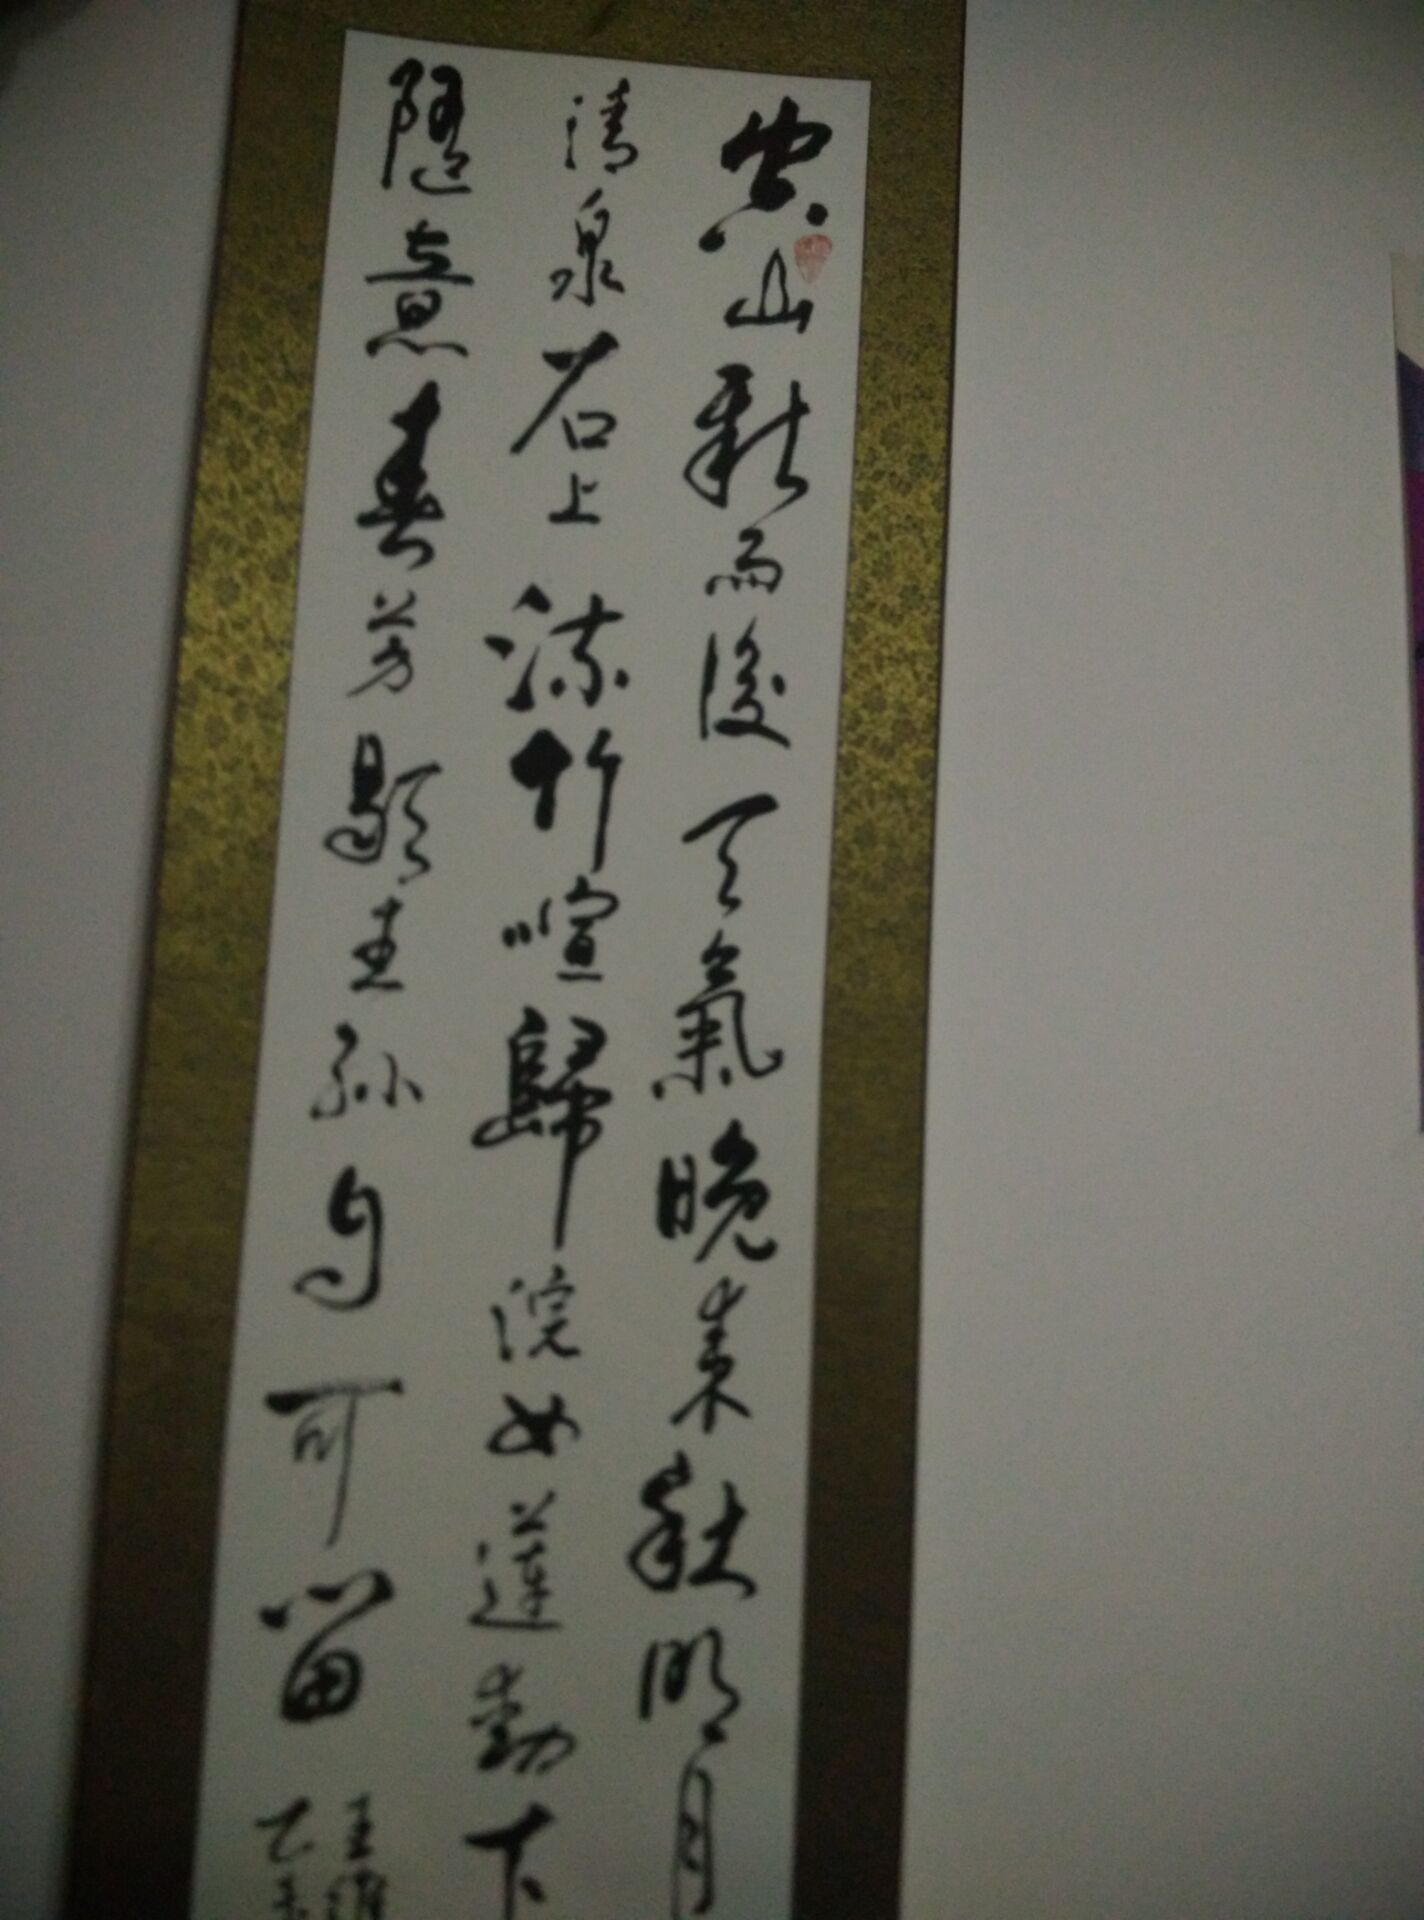 空山新雨後天氣晚來秋明月
清泉石上流竹喧歸浣女蓮動下
隨意春芳歇王孫自可留
王維
乙